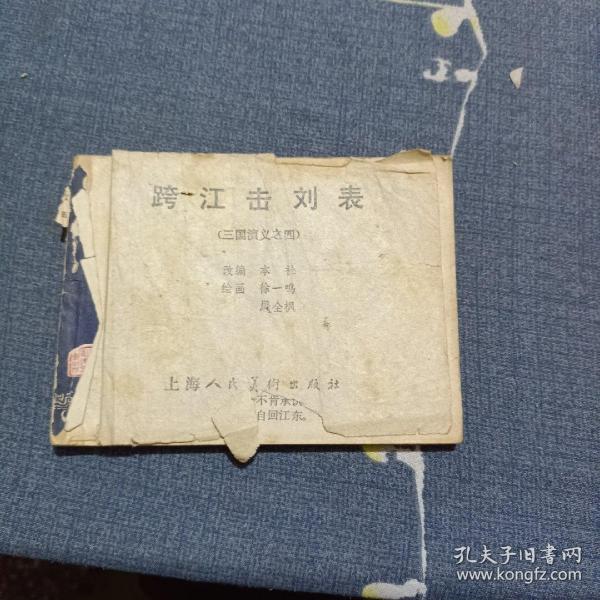 跨江击刘表
(三国演义之四)
改编 本社
绘画 徐一鸣
周全枫
上海人民美術出版社
不肯承认
自回江东。
孔夫子旧書网
www.kongfz.com